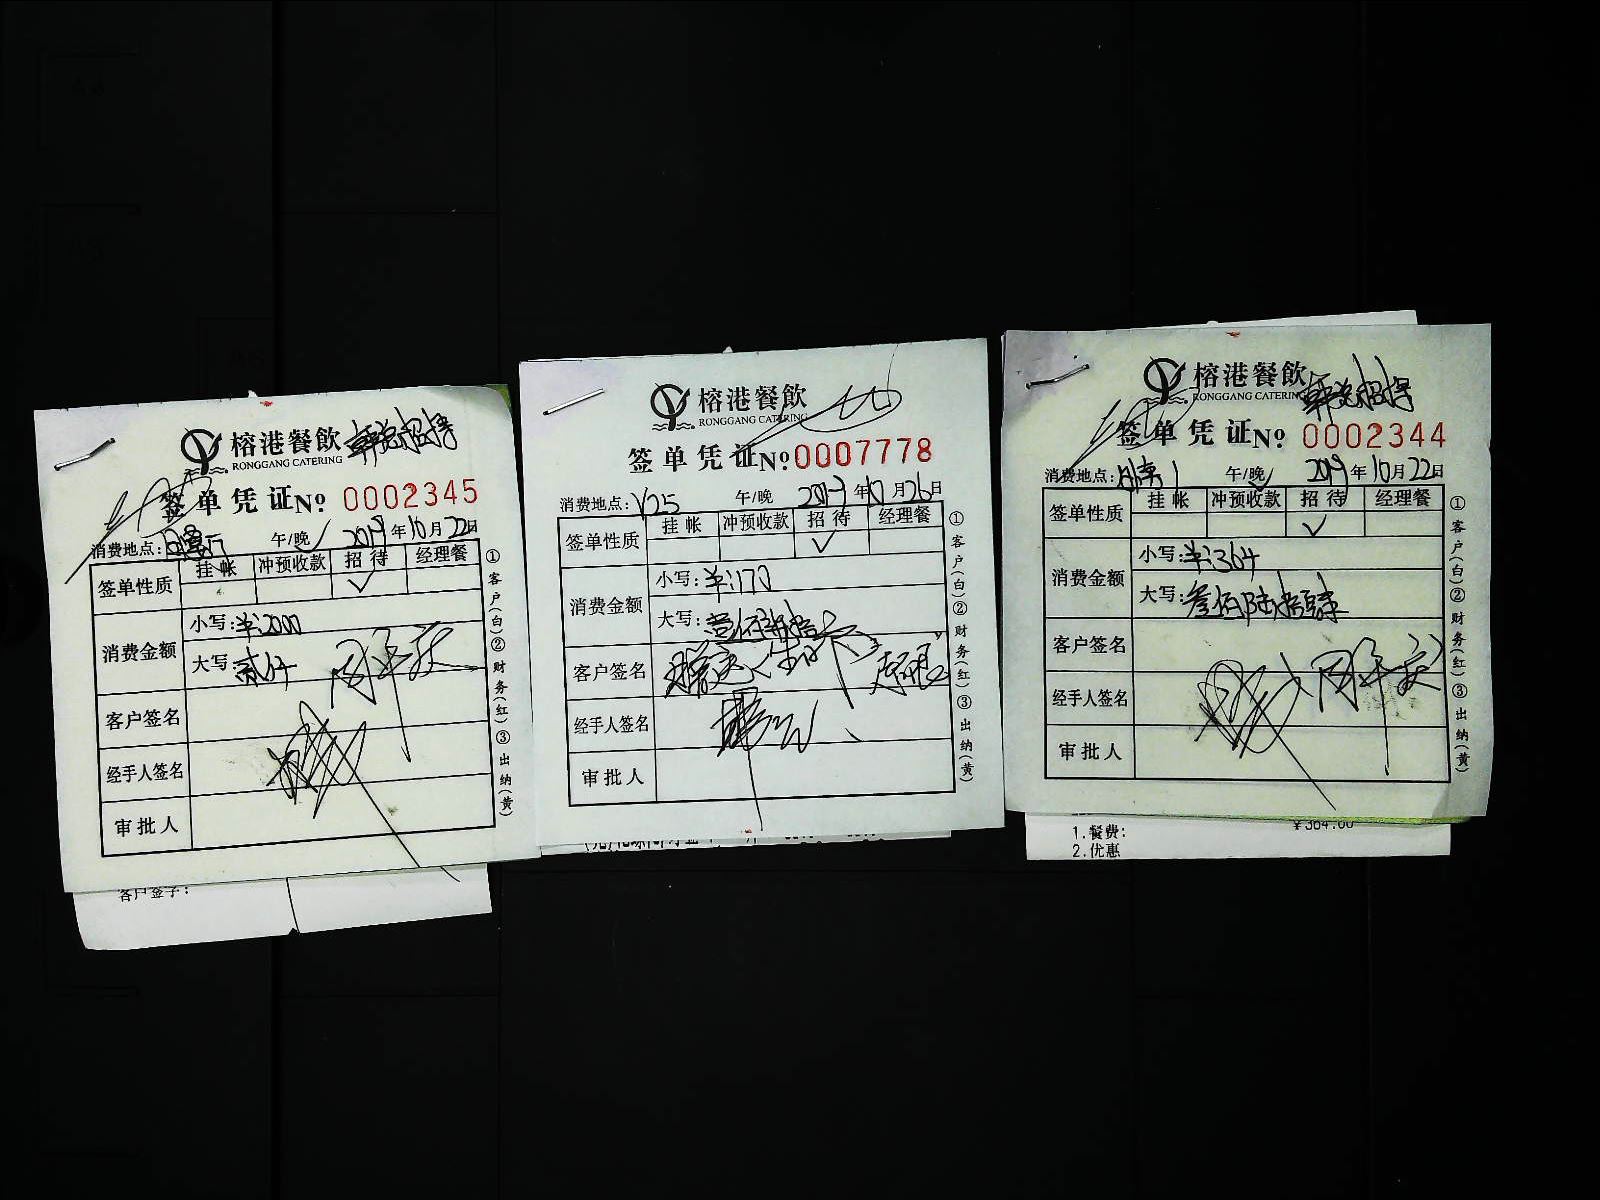 榕港餐飲
RONGGANG CATERING
韩总招待
签单凭证 No 0002345
消费地点: 午/晚 2019年10月22日
签单性质 挂帐 冲预收款 招待 经理餐
✓
消费金额 小写:¥:2000
大写 贰仟
客户签名
经手人签名
审批人
①客户(白)②财务(红)③出纳(黄)
客户签字:
榕港餐飲
RONGGANG CATERING
签单凭证 No 0007778
消费地点: V25 午/晚 2019年10月26日
签单性质 挂帐 冲预收款 招待 经理餐
✓
消费金额 小写:¥:170
大写:
客户签名
经手人签名
审批人
①客户(白)②财务(红)③出纳(黄)
榕港餐飲
RONGGANG CATERING
韩总招待
签单凭证 No 0002344
消费地点: 午/晚 2019年10月22日
签单性质 挂帐 冲预收款 招待 经理餐
✓
消费金额 小写:¥:364
大写:叁佰陆拾肆
客户签名
经手人签名
审批人
①客户(白)②财务(红)③出纳(黄)
1.餐费: ¥364.00
2.优惠